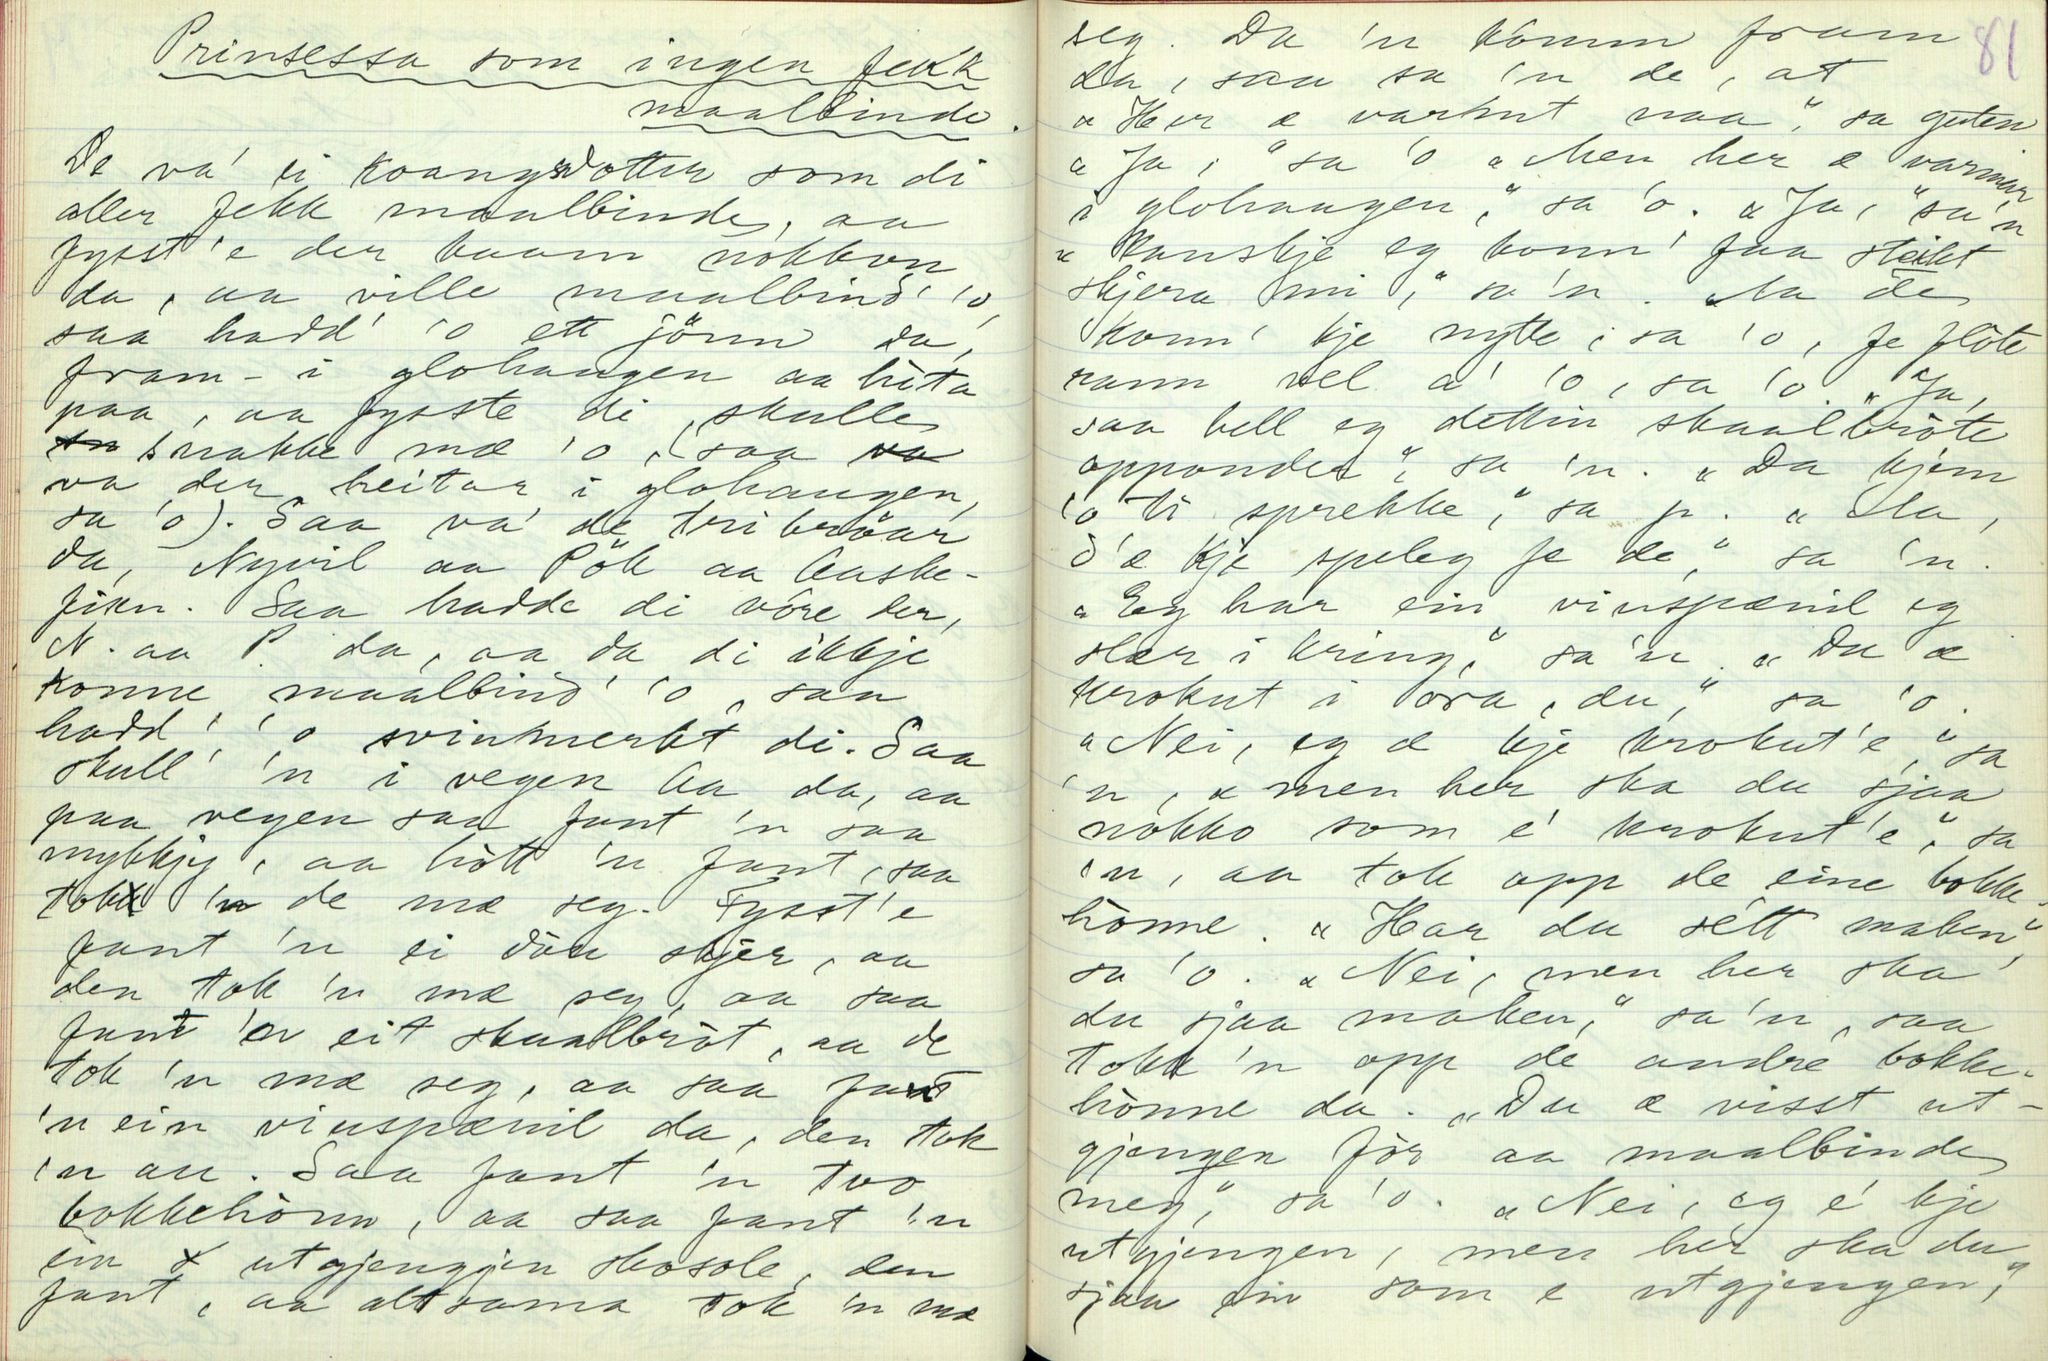 Prinsessa som ingen fekk
maalbinde.
De va' ei koangsdotter som di
aller fekk maalbinde, aa
fysst'e der kaam nokkon
da, aa ville maalbind' 'o,
saa hadd' 'o ett jönn da,
fram - i glohaugen aa hita
paa, aa fysste di skulle
snakke mæ 'o, (saa
va der heitar i glohaugen,
sa 'o). Saa va' de tri bröar
da, Nyvil aa Pök aa Aaske-
fisn. Saa hadde di vöre der,
N. aa P. da, aa da di ikkje
konne maalbind' 'o, saa
hadd' 'o svinmerkt di. Saa
skull' 'n i vegen Aa da, aa
paa vegen saa fant 'n saa
mykkjy, aa hött 'n fant, saa
tok 'n de mæ seg. Fysst'e
fant 'n ei döu skjer, aa
den tok 'n mæ seg, aa saa
fant 'n eit skaalbröt, aa de
tok 'n mæ seg, aa saa fant
'n ein viuspænil da, den tok
'n au. Saa fant 'n two
bokkehönn, aa saa fant 'n
ein utgjengjen skosole, den
fant, aa altsama tok 'n mæ
81
seg. Da 'n komm fram
da, saa sa 'n de, at
"Her æ varmt naa," sa guten
"Ja," sa 'o "Men her æ varmar
i glohaugen," sa 'o. "Ja," sa'n
"Kanskje eg konn' faa steikt
skjera mi," sa 'n. Aa de
konn' kje nytte, sa 'o, fe flöte
rann vel a' 'o, sa 'o. "Ja,
saa hell eg dettin skaalbröte
opponde," sa 'n. "Da kjem
'o ti sprekke," sa p. "Aa,
d'æ kje speleg fe de," sa 'n.
"Eg har ein viuspænil eg
slær i kring," sa'n. "Du æ
krokut i ora, du," sa 'o.
"Nei, eg æ kje krokut'e," sa
'n, "men her ska du sjaa
nokko som e' krokut'e," sa
'n, aa tok opp de eine bokke-
hönne. "Har du sett maken,"
sa 'o. "Nei, men her ska
du sjaa maken," sa'n, saa
tok 'n opp de andre bokke-
hönne da. "Du æ visst ut-
gjengen för aa maalbinde
meg," sa 'o. "Nei, eg e' kje
utgjengen, men her ska du
sjaa ein som e utgjengen,"